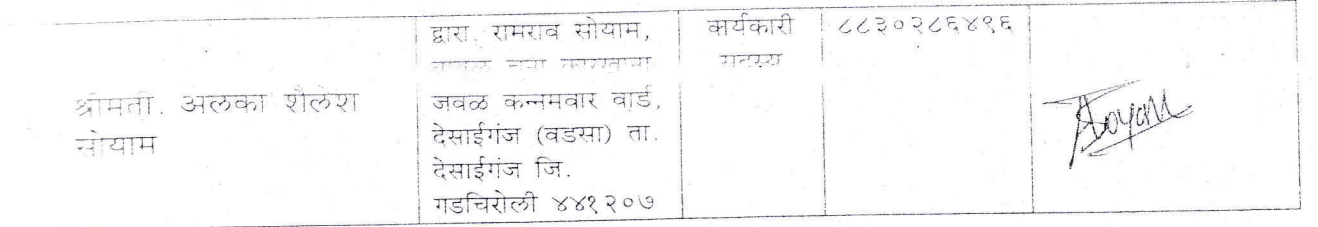 श्रीमती. अलका शैलेश
सोयाम
द्वारा. रामराव सोयाम,
जवळ कन्नमवार वार्ड,
देसाईगंज (वडसा) ता.
देसाईगंज जि.
गडचिरोली ४४१२०७
कार्यकारी
सदस्य
८८३०२८६४९६